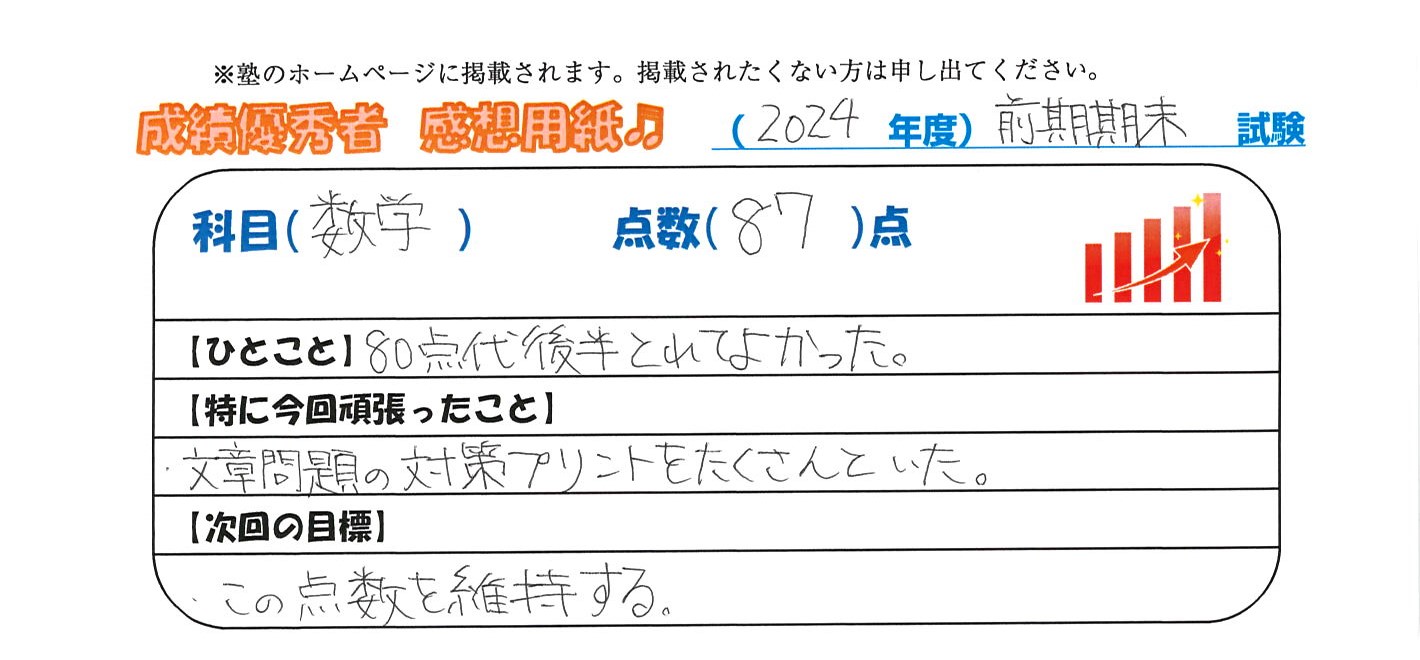 ※塾のホームページに掲載されます。掲載されたくない方は申し出てください。
成績優秀者 感想用紙♫ (2024年度) 前期期末 試験
科目(数学) 点数(87)点
【ひとこと】80点代後半とれてよかった。
【特に今回頑張ったこと】
・文章問題の対策プリントをたくさんといた。
【次回の目標】
・この点数を維持する。